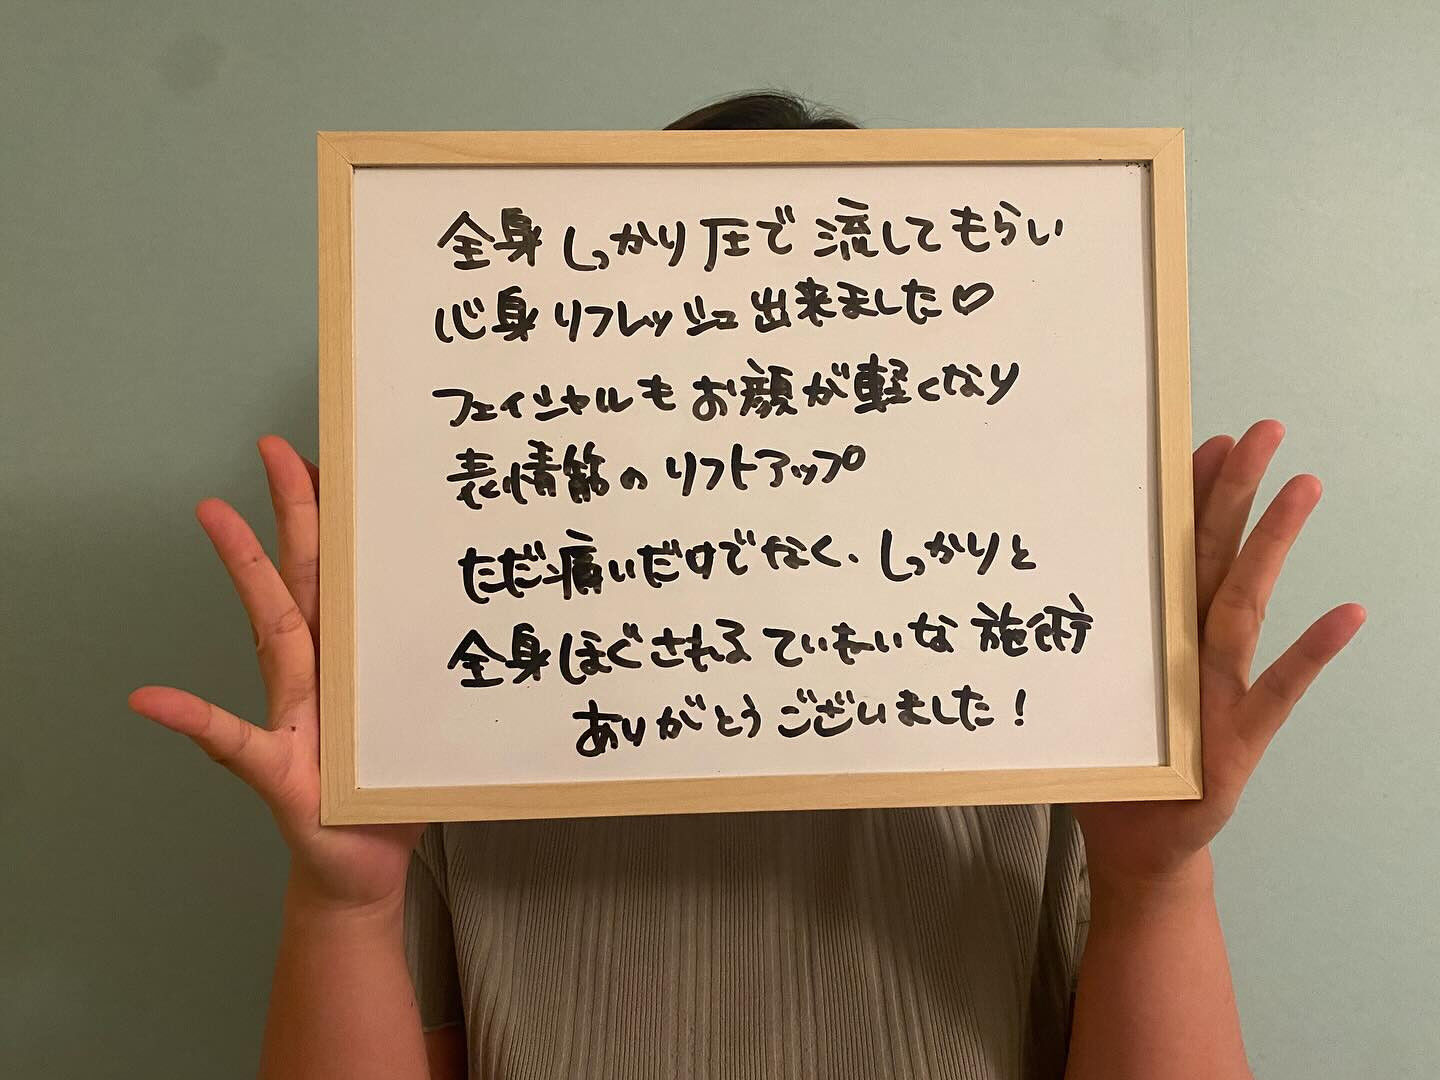 全身しっかり圧で流してもらい
心身リフレッシュ出来ました♡
フェイシャルもお顔が軽くなり
表情筋のリフトアップ
ただ痛いだけでなく、しっかりと
全身ほぐされるていねいな施術
ありがとうございました！